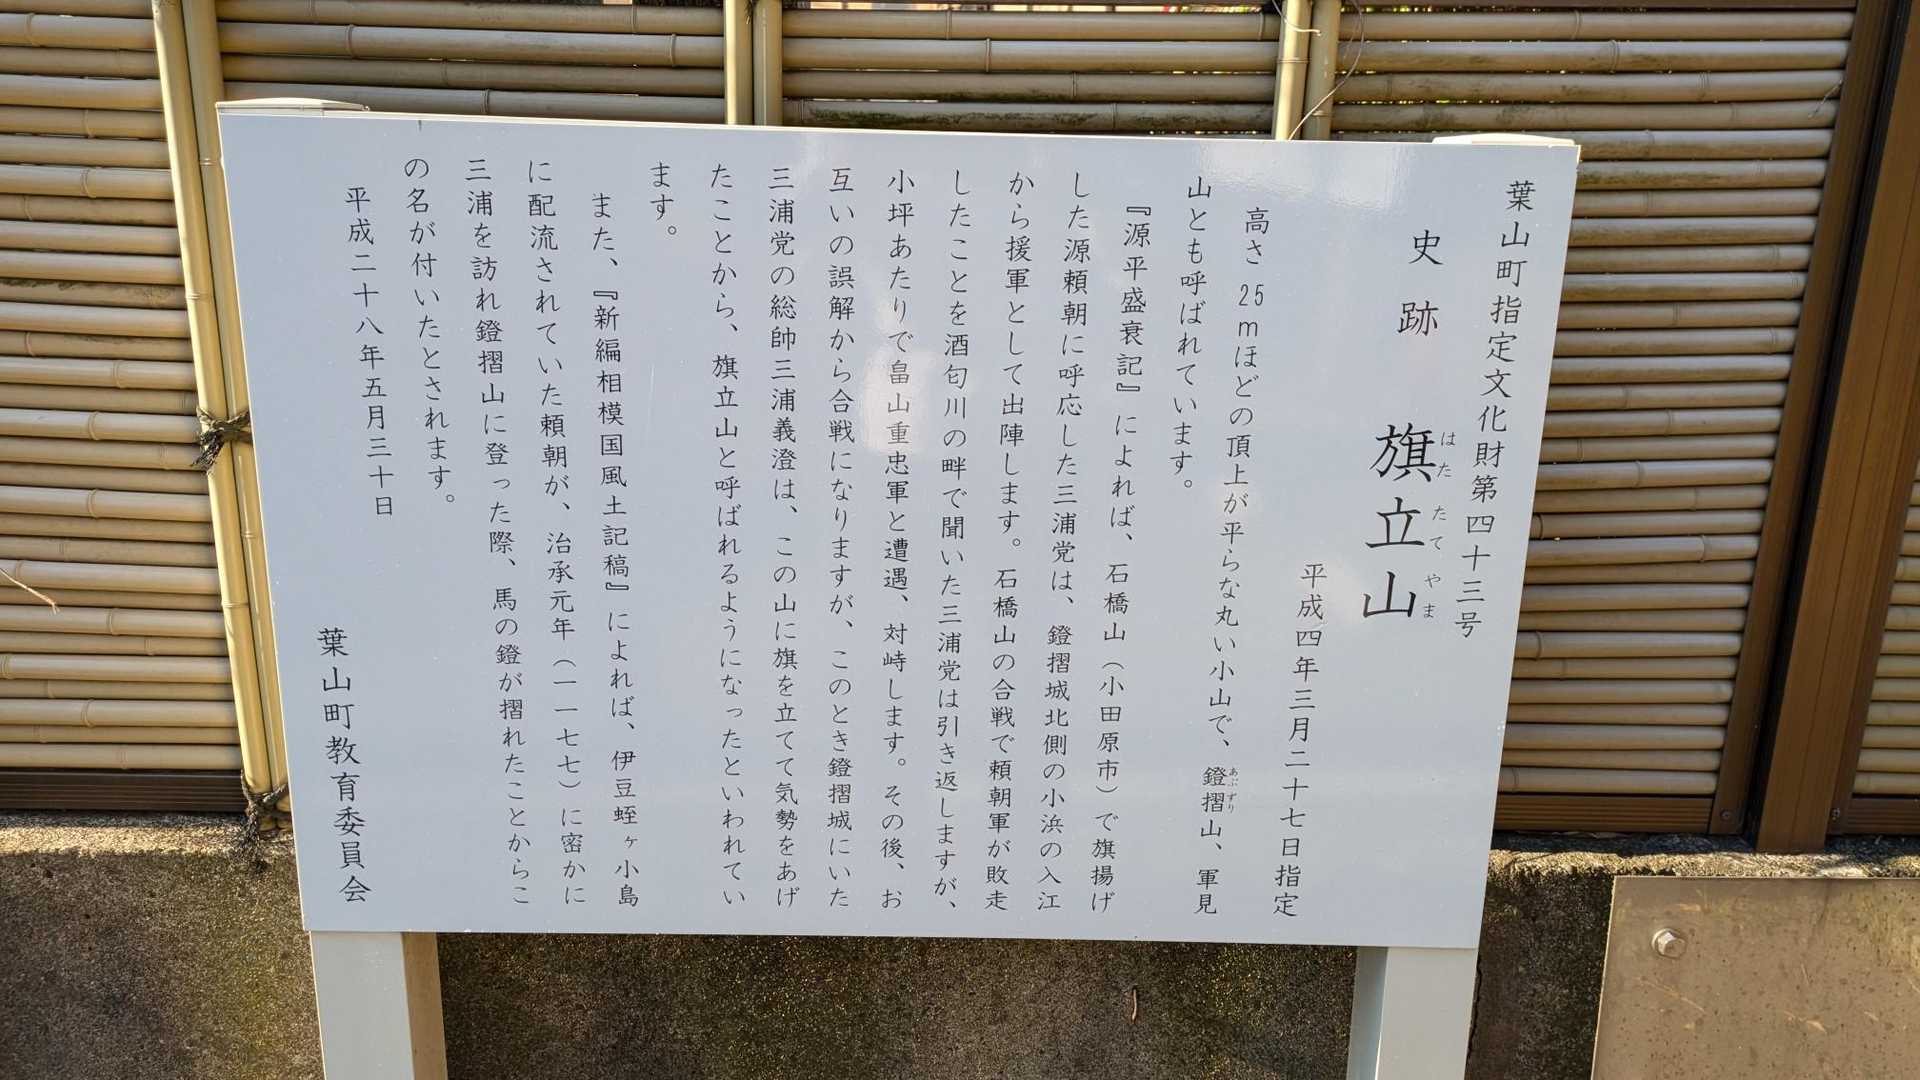 葉山町指定文化財第四十三号
史跡 旗立山
はた たて やま
平成四年三月二十七日指定
高さ25mほどの頂上が平らな丸い小山で、鐙摺山、軍見
あぶずり
山とも呼ばれています。
『源平盛衰記』によれば、石橋山(小田原市)で旗揚げ
した源頼朝に呼応した三浦党は、鐙摺城北側の小浜の入江
から援軍として出陣します。石橋山の合戦で頼朝軍が敗走
したことを酒匂川の畔で聞いた三浦党は引き返しますが、
小坪あたりで畠山重忠軍と遭遇、対峙します。その後、お
互いの誤解から合戦になりますが、このとき鐙摺城にいた
三浦党の総帥三浦義澄は、この山に旗を立てて気勢をあげ
たことから、旗立山と呼ばれるようになったといわれてい
ます。
また、『新編相模国風土記稿』によれば、伊豆蛭ヶ小島
に配流されていた頼朝が、治承元年(一一七七)に密かに
三浦を訪れ鐙摺山に登った際、馬の鐙が摺れたことからこ
の名が付いたとされます。
平成二十八年五月三十日
葉山町教育委員会